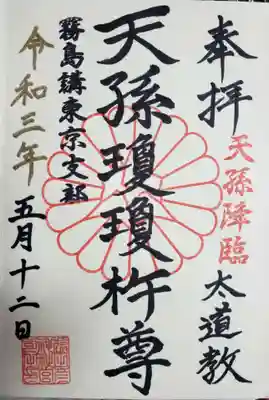 奉拝
天孫降臨
太道教
天孫瓊瓊杵尊
霧島講東京支部
令和三年
五月十二日